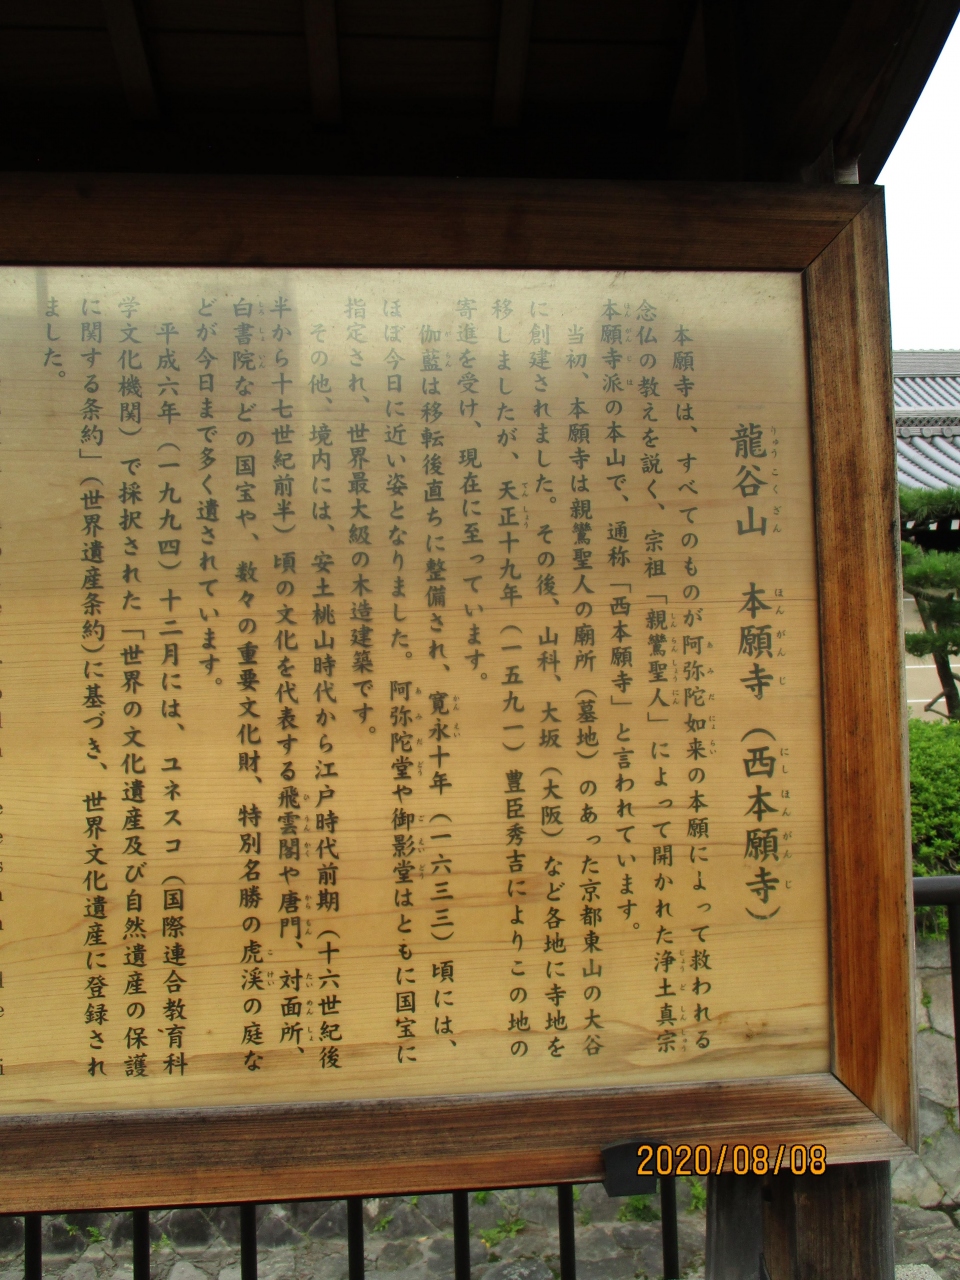 龍谷山 本願寺（西本願寺）
本願寺は、すべてのものが阿弥陀如来の本願によって救われる
念仏の教えを説く、宗祖「親鸞聖人」によって開かれた浄土真宗
本願寺派の本山で、通称「西本願寺」と言われています。
当初、本願寺は親鸞聖人の廟所（墓地）のあった京都東山の大谷
に創建されました。その後、山科、大坂（大阪）など各地に寺地を
移しましたが、天正十九年（一五九一）豊臣秀吉によりこの地の
寄進を受け、現在に至っています。
伽藍は移転後直ちに整備され、寛永十年（一六三三）頃には、
ほぼ今日に近い姿となりました。阿弥陀堂や御影堂はともに国宝に
指定され、世界最大級の木造建築です。
その他、境内には、安土桃山時代から江戸時代前期（十六世紀後
半から十七世紀前半）頃の文化を代表する飛雲閣や唐門、対面所、
白書院などの国宝や、数々の重要文化財、特別名勝の虎渓の庭な
どが今日まで多く遺されています。
平成六年（一九九四）十二月には、ユネスコ（国際連合教育科
学文化機関）で採択された「世界の文化遺産及び自然遺産の保護
に関する条約」（世界遺産条約）に基づき、世界文化遺産に登録され
ました。
2020/08/08